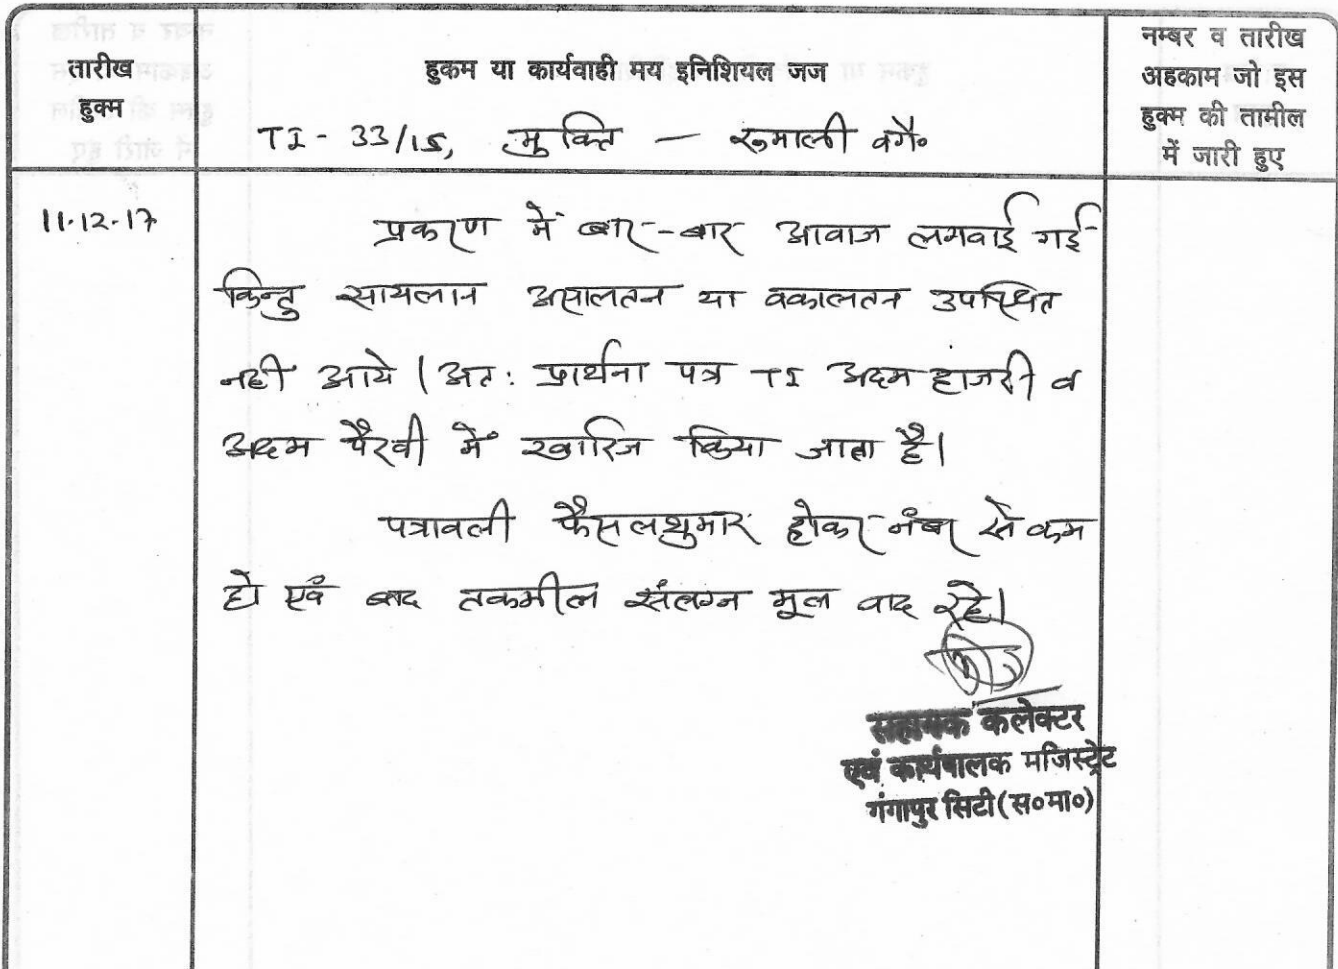 तारीख
हुक्म
हुकम या कार्यवाही मय इनिशियल जज
TI - 33/15, मुक्ति — रुमाली वगै०
नम्बर व तारीख
अहकाम जो इस
हुक्म की तामील
में जारी हुए
11.12.17
प्रकरण में बार-बार आवाज लगवाई गई
किन्तु सायलान असालतन या वकालतन उपस्थित
नहीं आये। अत: प्रार्थना पत्र TI अदम हाजरी व
अदम पैरवी में खारिज किया जाता है।
पत्रावली फैसलशुमार होकर नंबर से कम
हो एवं बाद तकमील संलग्न मूल वाद रहे।
सहायक कलेक्टर
एवं कार्यपालक मजिस्ट्रेट
गंगापुर सिटी (स०मा०)